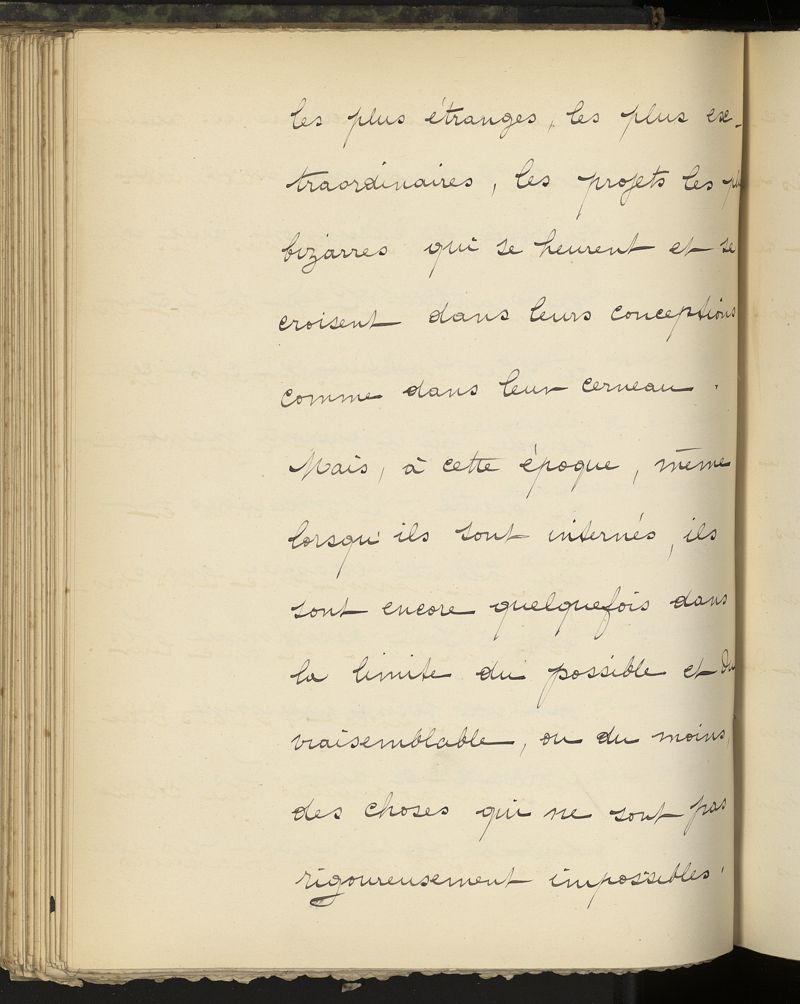 les plus étranges, les plus ex-
traordinaires, les projets les
bizarres qui se heurent et se
croisent dans leurs conceptions
comme dans leur cerneau.
Mais, à cette époque, même
lorsqu'ils sont internés, ils
sont encore quelquefois dans
la limite du possible et du
vraisemblable, ou du moins,
des choses qui ne sont pas
rigoureusement impossibles.